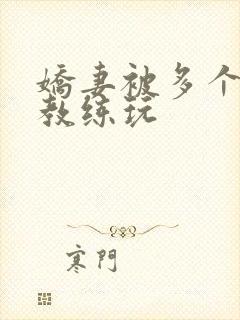 嬌妻被多个
教练玩
寒門